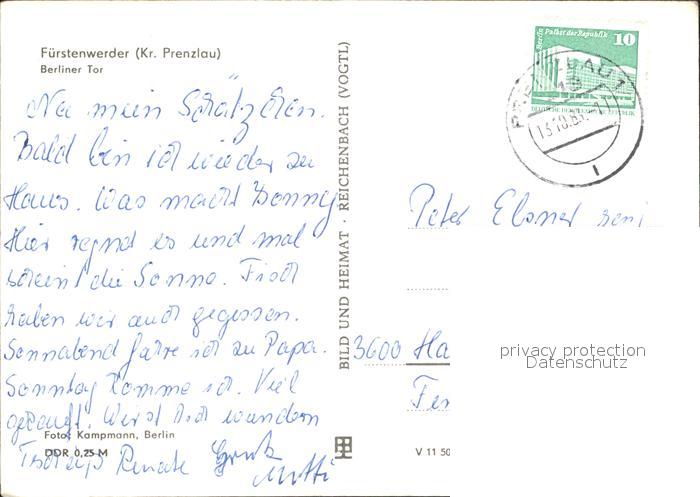 Fürstenwerder (Kr. Prenzlau)
Berliner Tor
Na mein Schätzchen.
Bald bin ich wieder zu
Haus. Was macht Bonny
Hier regnd es und mal
scheint die Sonne. Fisch
haben wir auch gegessen.
Sonnabend fahre ich zu Papa.
Sonntag komme ich. Viel
gekauft. Werst Dich wundern
Tschüß Renate Gruß
Mutti
Foto: Kampmann, Berlin
DDR 0,25 M
BILD UND HEIMAT · REICHENBACH (VOGTL)
V 11 50
Berlin Palast der Republik 10
DEUTSCHE DEMOKRATISCHE REPUBLIK
PRENZLAU 1
Peter Elsner
3600 Ha
privacy protection
Datenschutz